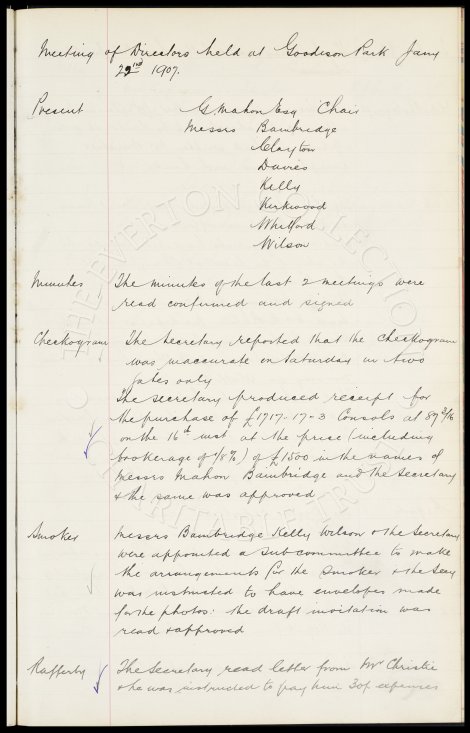 Meeting of Directors held at Goodison Park Jany
22nd 1907.
Present G. Mahon Esq Chair
Messrs Bainbridge
Clayton
Davies
Kelly
Kirkwood
Whitford
Wilson
Minutes The minutes of the last 2 meetings were
read confirmed and signed
Checkogram The Secretary reported that the Checkogram
was inaccurate on Saturday in two
gates only
The Secretary produced receipt for
the purchase of £1717.17-3 Consols at 87 3/16
on the 16th inst at the price (including
brokerage of 1/8%) of £1500 in the names of
Messrs Mahon Bainbridge and the Secretary
& the same was approved
Smoker Messrs Bainbridge Kelly Wilson & the Secretary
were appointed a Sub committee to make
the arrangements for the Smoker & the Secy
was instructed to have envelopes made
for the photos: the draft invitation was
read & approved
Rafferty The Secretary read letter from Mr Christie
& he was instructed to pay him 30/- expenses
© THE EVERTON COLLECTION
CHARITABLE TRUST